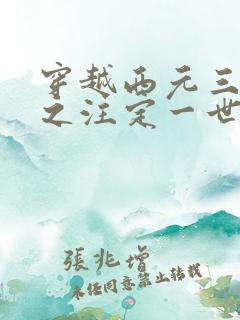 穿越西元三
之汪定一世
張兆增
未经同意禁止转载